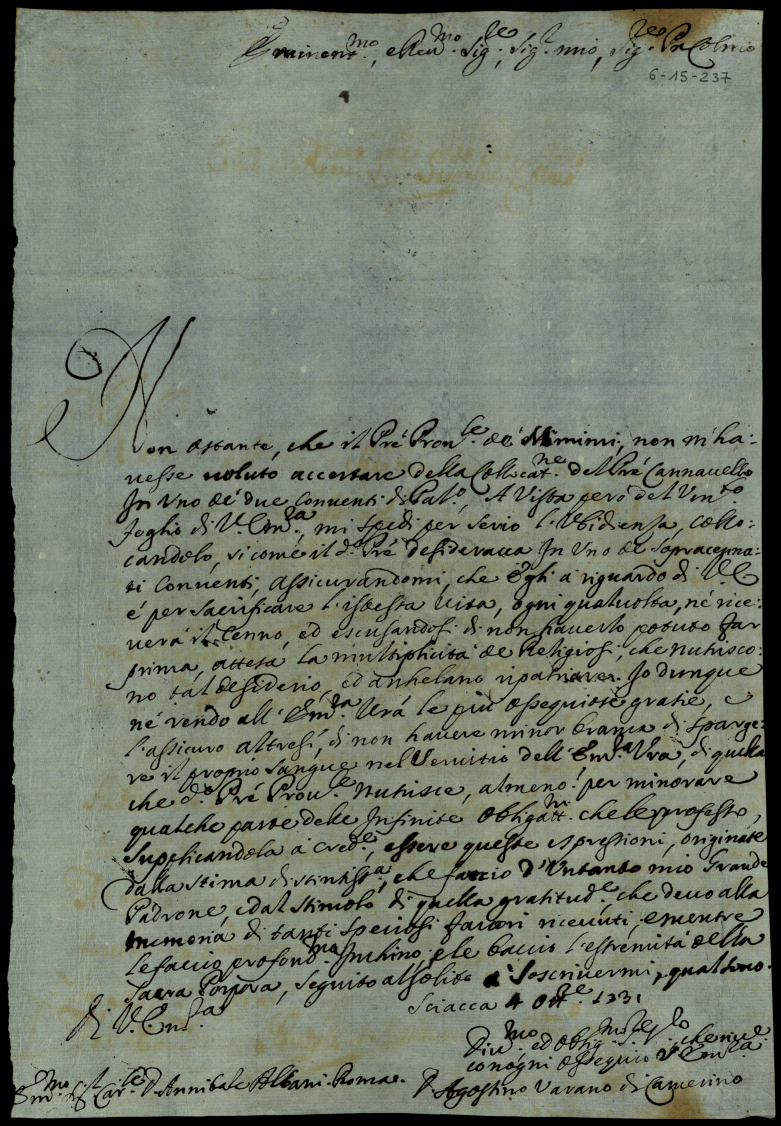 Eminent.mo, e Reu.mo Sig.re, Sig.r mio, Sig.re P'rn Colmo
6-15-237
Non ostante, che il Pré Prou.le de' Minimi, non m'ha:
uesse uoluto accertare della Collocat.ne del Pré Cannauello
In Vno de' due Conuenti di Pal.o, A Vista però del Uen.to
foglio di V. Em.za, mi spedì per serio l'Vbidienza, collo:
candolo, si come il d.o Pré desideraua In Vno de Sopracenna:
ti Conuenti, assicurandomi, che Egli a riguardo di V.E
é per sacrificare l'istessa Vita, ogni qualuolta, né rice:
uerá il Cenno, ed escusandosi di non hauerlo potuto far
prima, attesa la multiplicitá de Religiosi, che nutrisco:
no tal desiderio, ed anhelano ripatriare. Jo dunque
né rendo all'Em.za Vrá le piú ossequiose gratie, e
l'assicuro altresí, di non hauere minor brama di sparge:
re il proprio sangue nel Seruitio dell'Em.za Vra, di quella
che d.o Pré Prou.le nutrisce, almeno per minorare
qualche parte delle Infinite Obligatt.ni che le professo,
Supplicandola á cred.e, essere queste espressioni, originate
dalla stima distintiss.a, che faccio d'Vn tanto mio Grande
Padrone, e dal Stimolo di quella gratitud.e, che deuo alla
memoria di tanti speciosi fauori riceuuti, e mentre
le faccio profond.mo Inchino, e le baccio l'estremitá della
Sacra Porpora, seguito al solito á Soscriuermi, qual sono.
Di V. Em.za
Sciacca 4 Ott.re 1731
Diu.mo ed oblig.mo
con ogni ossequio
Em.mo S.r Car.le D. Annibale Albani. Roma.
D. Agostino Varano di Camerino